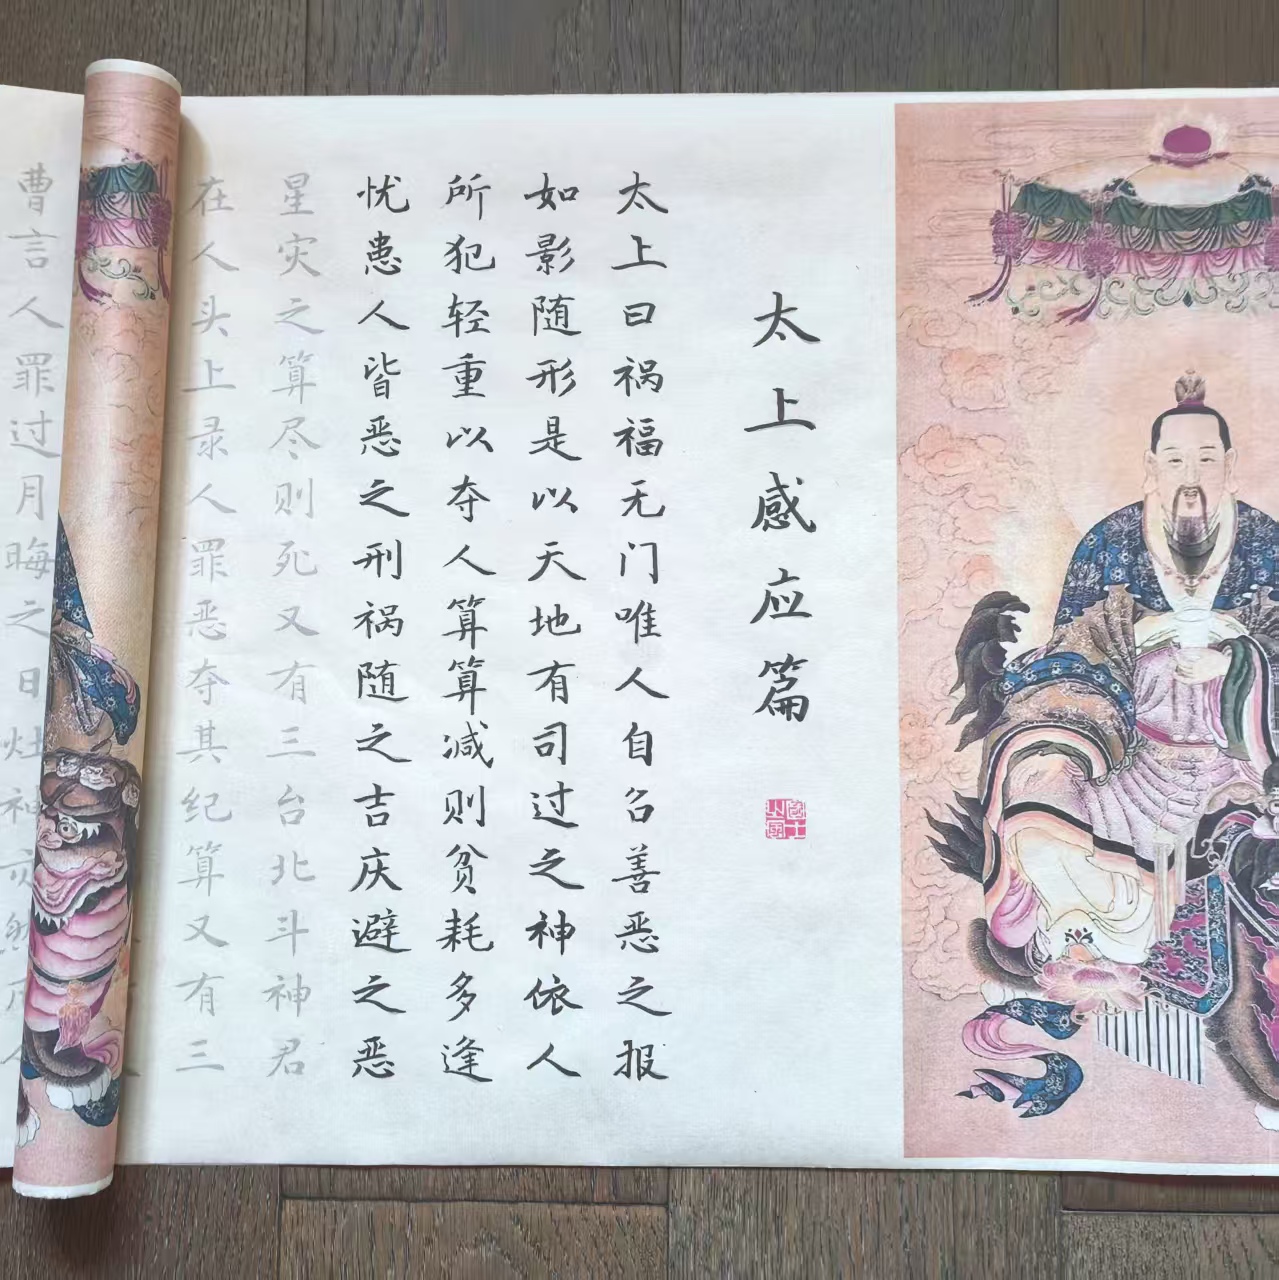 太上感应篇
国士
太上曰祸福无门唯人自召善恶之报
如影随形是以天地有司过之神依人
所犯轻重以夺人算算减则贫耗多逢
忧患人皆恶之刑祸随之吉庆避之恶
星灾之算尽则死又有三台北斗神君
在人头上录人罪恶夺其纪算又有三
曹言人罪过月晦之日灶神亦然凡人